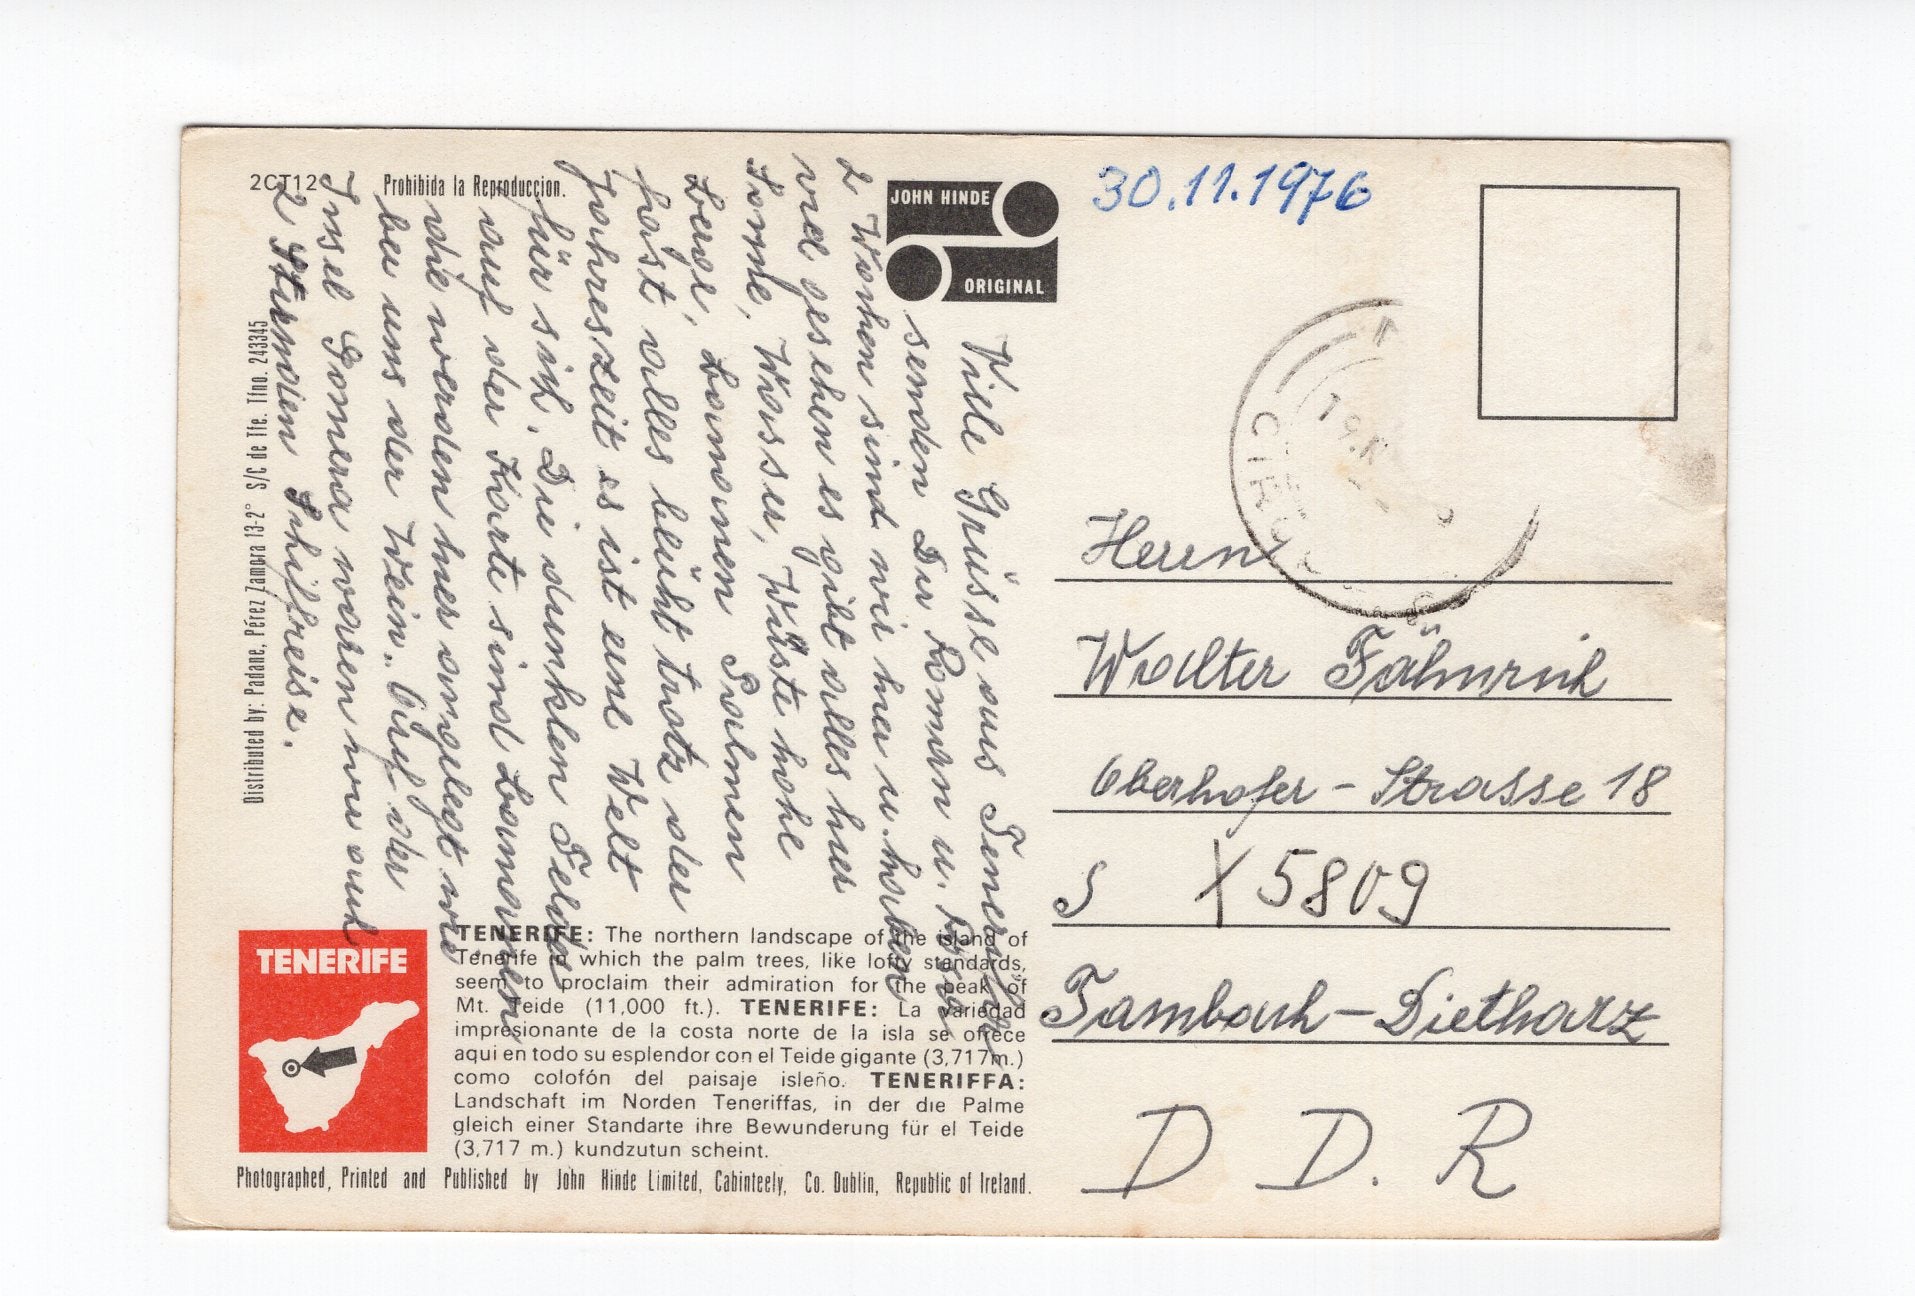 2CT12
Prohibida la Reproduccion.
JOHN HINDE
ORIGINAL
30.11.1976
Viele Grüsse aus Teneriffa
senden Dir Roman u.
2 Wochen sind wir hier u. haben
viel gesehen es gibt alles hier
Sonne, Wasser, Wüste hohe
Berge, Bananen Palmen
fast alles blüht trotz der
Jahreszeit es ist eine Welt
für sich. Die dunklen Felder
auf der Karte sind Bananen
die werden hier angelegt wie
bei uns der Wein. Auf der
Insel Gomera waren wir auch
2 Stunden Schiffreise.
Distributed by: Padane, Pérez Zamora 13-2° S/C de Tfe. Tfno. 243345
Herrn
Walter Fähnrich
Oberhofer-Strasse 18
X 5809
Tambach-Dietharz
D. D. R
TENERIFE
TENERIFE: The northern landscape of the island of
Tenerife in which the palm trees, like lofty standards,
seem to proclaim their admiration for the peak of
Mt. Teide (11,000 ft.). TENERIFE: La variedad
impresionante de la costa norte de la isla se ofrece
aqui en todo su esplendor con el Teide gigante (3,717m.)
como colofón del paisaje isleño. TENERIFFA:
Landschaft im Norden Teneriffas, in der die Palme
gleich einer Standarte ihre Bewunderung für el Teide
(3,717 m.) kundzutun scheint.
Photographed, Printed and Published by John Hinde Limited, Cabinteely, Co. Dublin, Republic of Ireland.